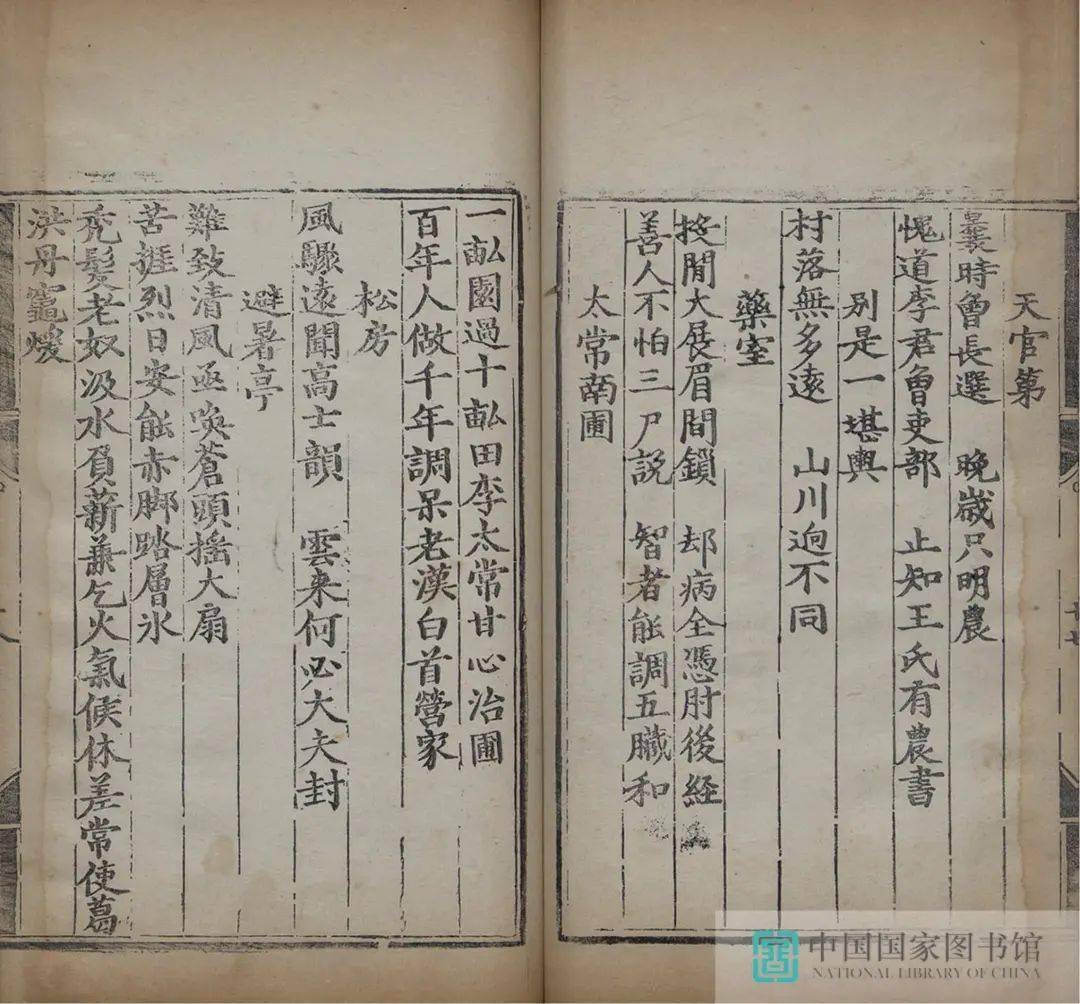 天官第
曩時曾長選　晚歲只明農
愧道李君曾吏部　止知王氏有農書
別是一堪輿
村落無多遠　山川逈不同
藥室
挍閒大展眉間鎖　却病全憑肘後経
善人不怕三尸説　智者能調五臟和
太常南圃
一畝園過十畝田李太常甘心治圃
百年人做千年調呆老漢白首營家
松房
風驟遠聞高士韻　雲来何必大夫封
避暑亭
難致清風亟喚蒼頭搖大扇
苦捱烈日安能赤脚踏層氷
禿髮老奴汲水負薪兼乞火氣候休差常使葛
洪丹竈煖
中国国家图书馆
NATIONAL LIBRARY OF CHINA